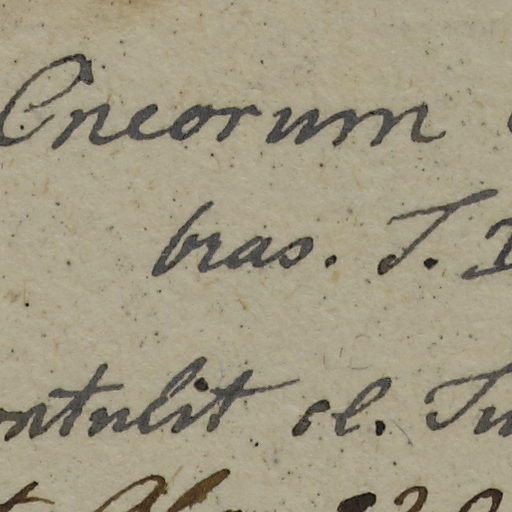 Cneorum
bras. T.
ontulit cl. Tu